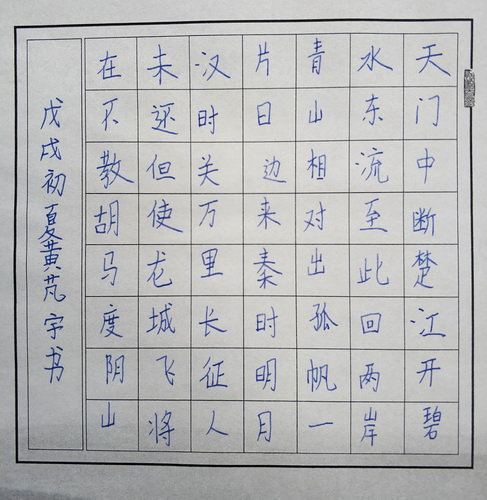 天门中断楚江开碧
水东流至此回两岸
青山相对出孤帆一
片日边来秦时明月
汉时关万里长征人
未还但使龙城飞将
在不教胡马度阴山
戊戌初夏黄芃宇书